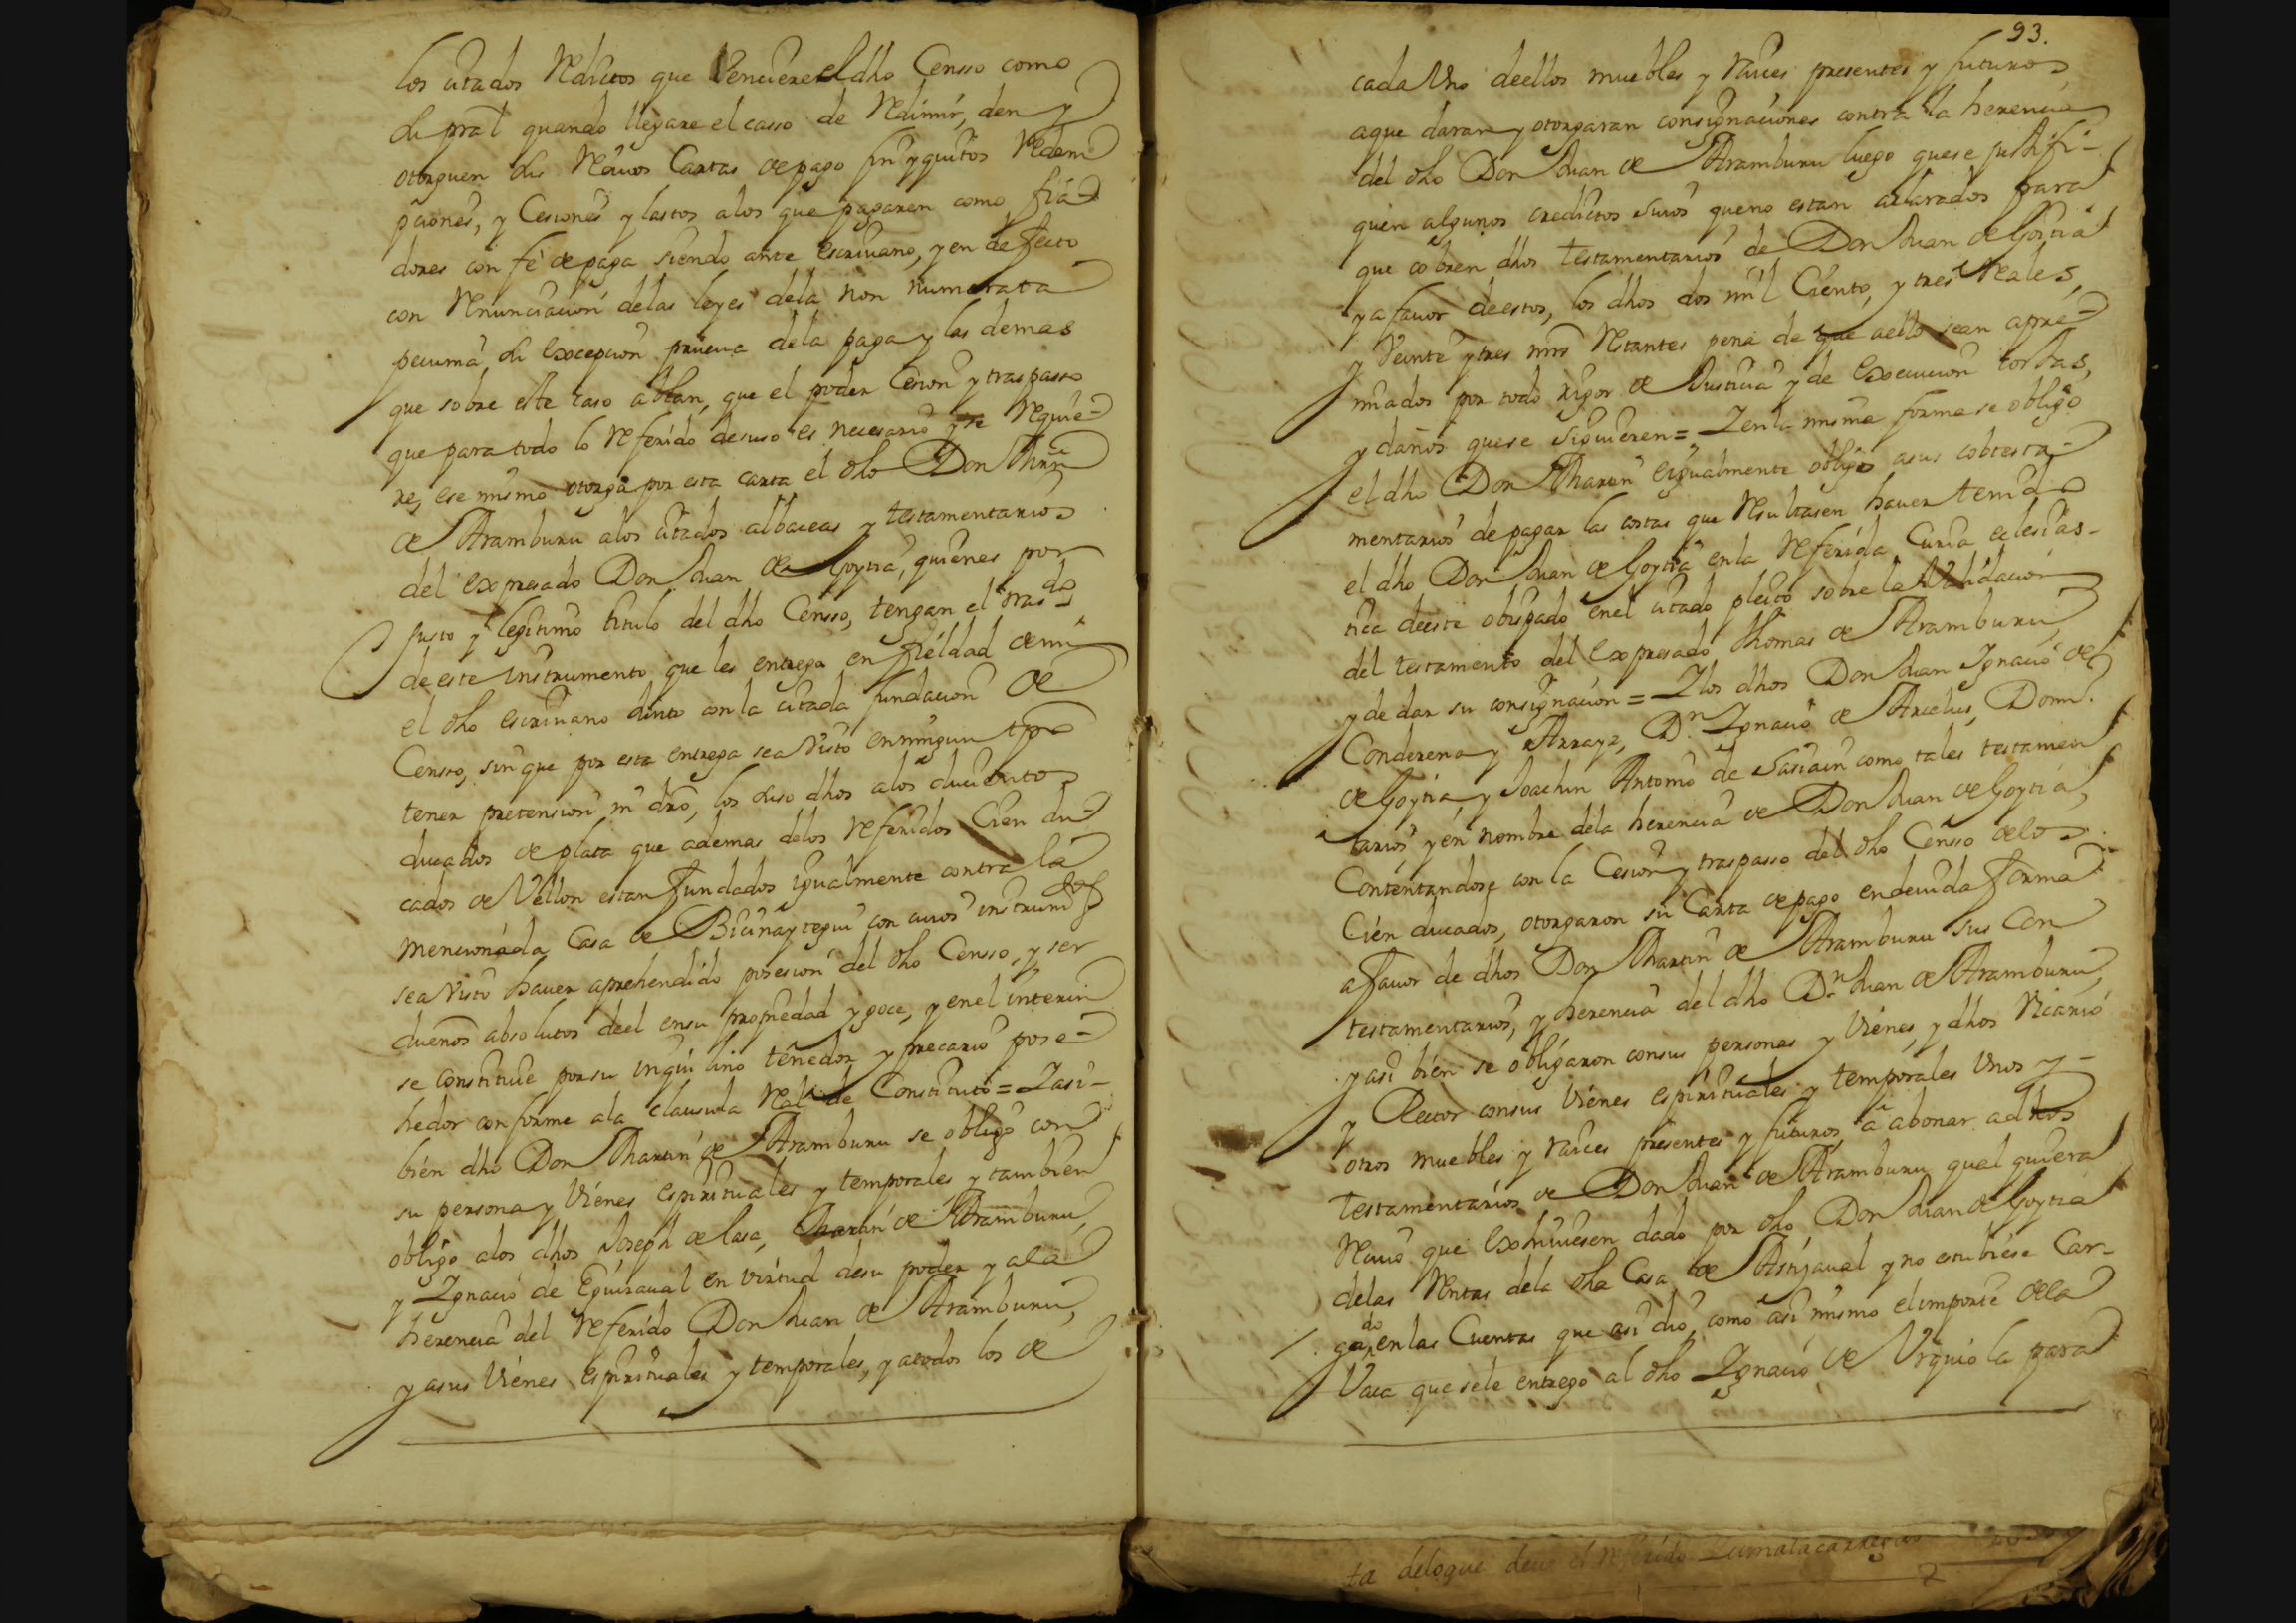 los citados Reditos que Venciere el dho Censso como
su pral quando llegare el casso de Redimir, den y
otorguen sus Reciuos Cartas de pago finyquitos Redem
pciones, y Cesiones y lastos alos que pagaren como fia-
dores con fé de paga siendo ante escriuano, y en defecto
con Renunciacion delas leyes dela non numerata
pecunia, su excepcion prueua dela paga y las demas
que sobre este caso ablan, que el poder Cesion y traspasso
que para todo lo Referido desuso es necesario y se Requie-
re, ese mismo otorga por esta carta el dho Don Mrn
de Aramburu alos citados albaceas y testamentarios
del expresado Don Juan de Goytia, quienes por
Justo y legitimo titulo del dho Censso, tengan el trasdo
de este instrumento que les entrega en fieldad de mi
el dho escriuano Junto con la citada fundacion de
Censso, sin que por esta entrega sea visto en ningun tpo
tener pretension ni dro, los suso dhos alos ducientos
ducados de plata que ademas delos referidos Cien du-
cados de Vellon estan fundados igualmente contra la
mencionada Casa de Bicuñaytegui con cuios instrumtos
sea visto hauer aprehendido posesion del dho Censso, y ser
dueños absolutos deel en su propiedad y goce, y en el interin
se constitue por su inquilino tenedor y precario pose-
hedor conforme ala clausula Ral de Constituto = Y asi-
bien dho Don Martin de Aramburu se obligo con
su persona y Vienes espirituales y temporales y tambien
obligo alos dhos Joseph de lasa, Martin de Aramburu,
y Ygnacio de Eguzraual en virtud desu poder y ala
herencia del Referido Don Juan de Aramburu,
y asus Vienes espirituales y temporales, y atodos los de
93.
cada Vno deellos muebles y Raices presentes y futuros
aque daran y otorgaran consignaciones contra la herencia
del dho Don Juan de Aramburu luego quese justifi-
quen algunos creditos suios queno estan aclarados para
que cobren dhos testamentarios de Don Juan de Goitia
y a fauor deestos, los dhos dos mil Ciento, y tres Reales,
y Veinte y tres mrs Restantes pena de que aello sean apre-
miados por todo rigor de Justicia y de execucion costas,
y daños quese siguieren = Y en la misma forma se obligo
el dho Don Martin eigualmente obligo asus cotesta-
mentarios de pagar las costas que Resultasen hauer tenido
el dho Don Juan de Goytia enla Referida Curia eclesias-
tica deeste obispado enel citado pleito sobre la Validacion
del testamento del expresado thomas de Aramburu
y de dar su consignacion = Y los dhos Don Juan Ygnacio de
Conderena y Arrayz, Dn Ygnacio de Arcelus, Domo
de Goytia y Joachin Antonio de Sasiain como tales testamen
tarios y en nombre dela herencia de Don Juan de Goytia,
Contentandose con la Cesion y traspasso del dho Censso delos
Cien ducados, otorgaron su Carta de pago en deuida forma
afauor de dhos Don Martin de Aramburu sus Con
testamentarios, y herencia del dho Dn Juan de Aramburu,
y asi bien se obligaron consus personas y Vienes, y dhos Vicario
y Rector consus Vienes espirituales y temporales Vnos y
otros muebles y Raices presentes y futuros, a abonar adhos
testamentarios de Don Juan de Aramburu qual quiera
Reciuo que exhiuiesen dado por dho Don Juan de Goytia
delas Rentas dela dha Casa de Astijaual y no estubiese Car-
gado en las Cuentas que asi dio, como asi mismo el importe dela
Vaca quesele entrego al dho Ygnacio de Vrquiola para
ta deloque deue el Referido Zumalacarregui